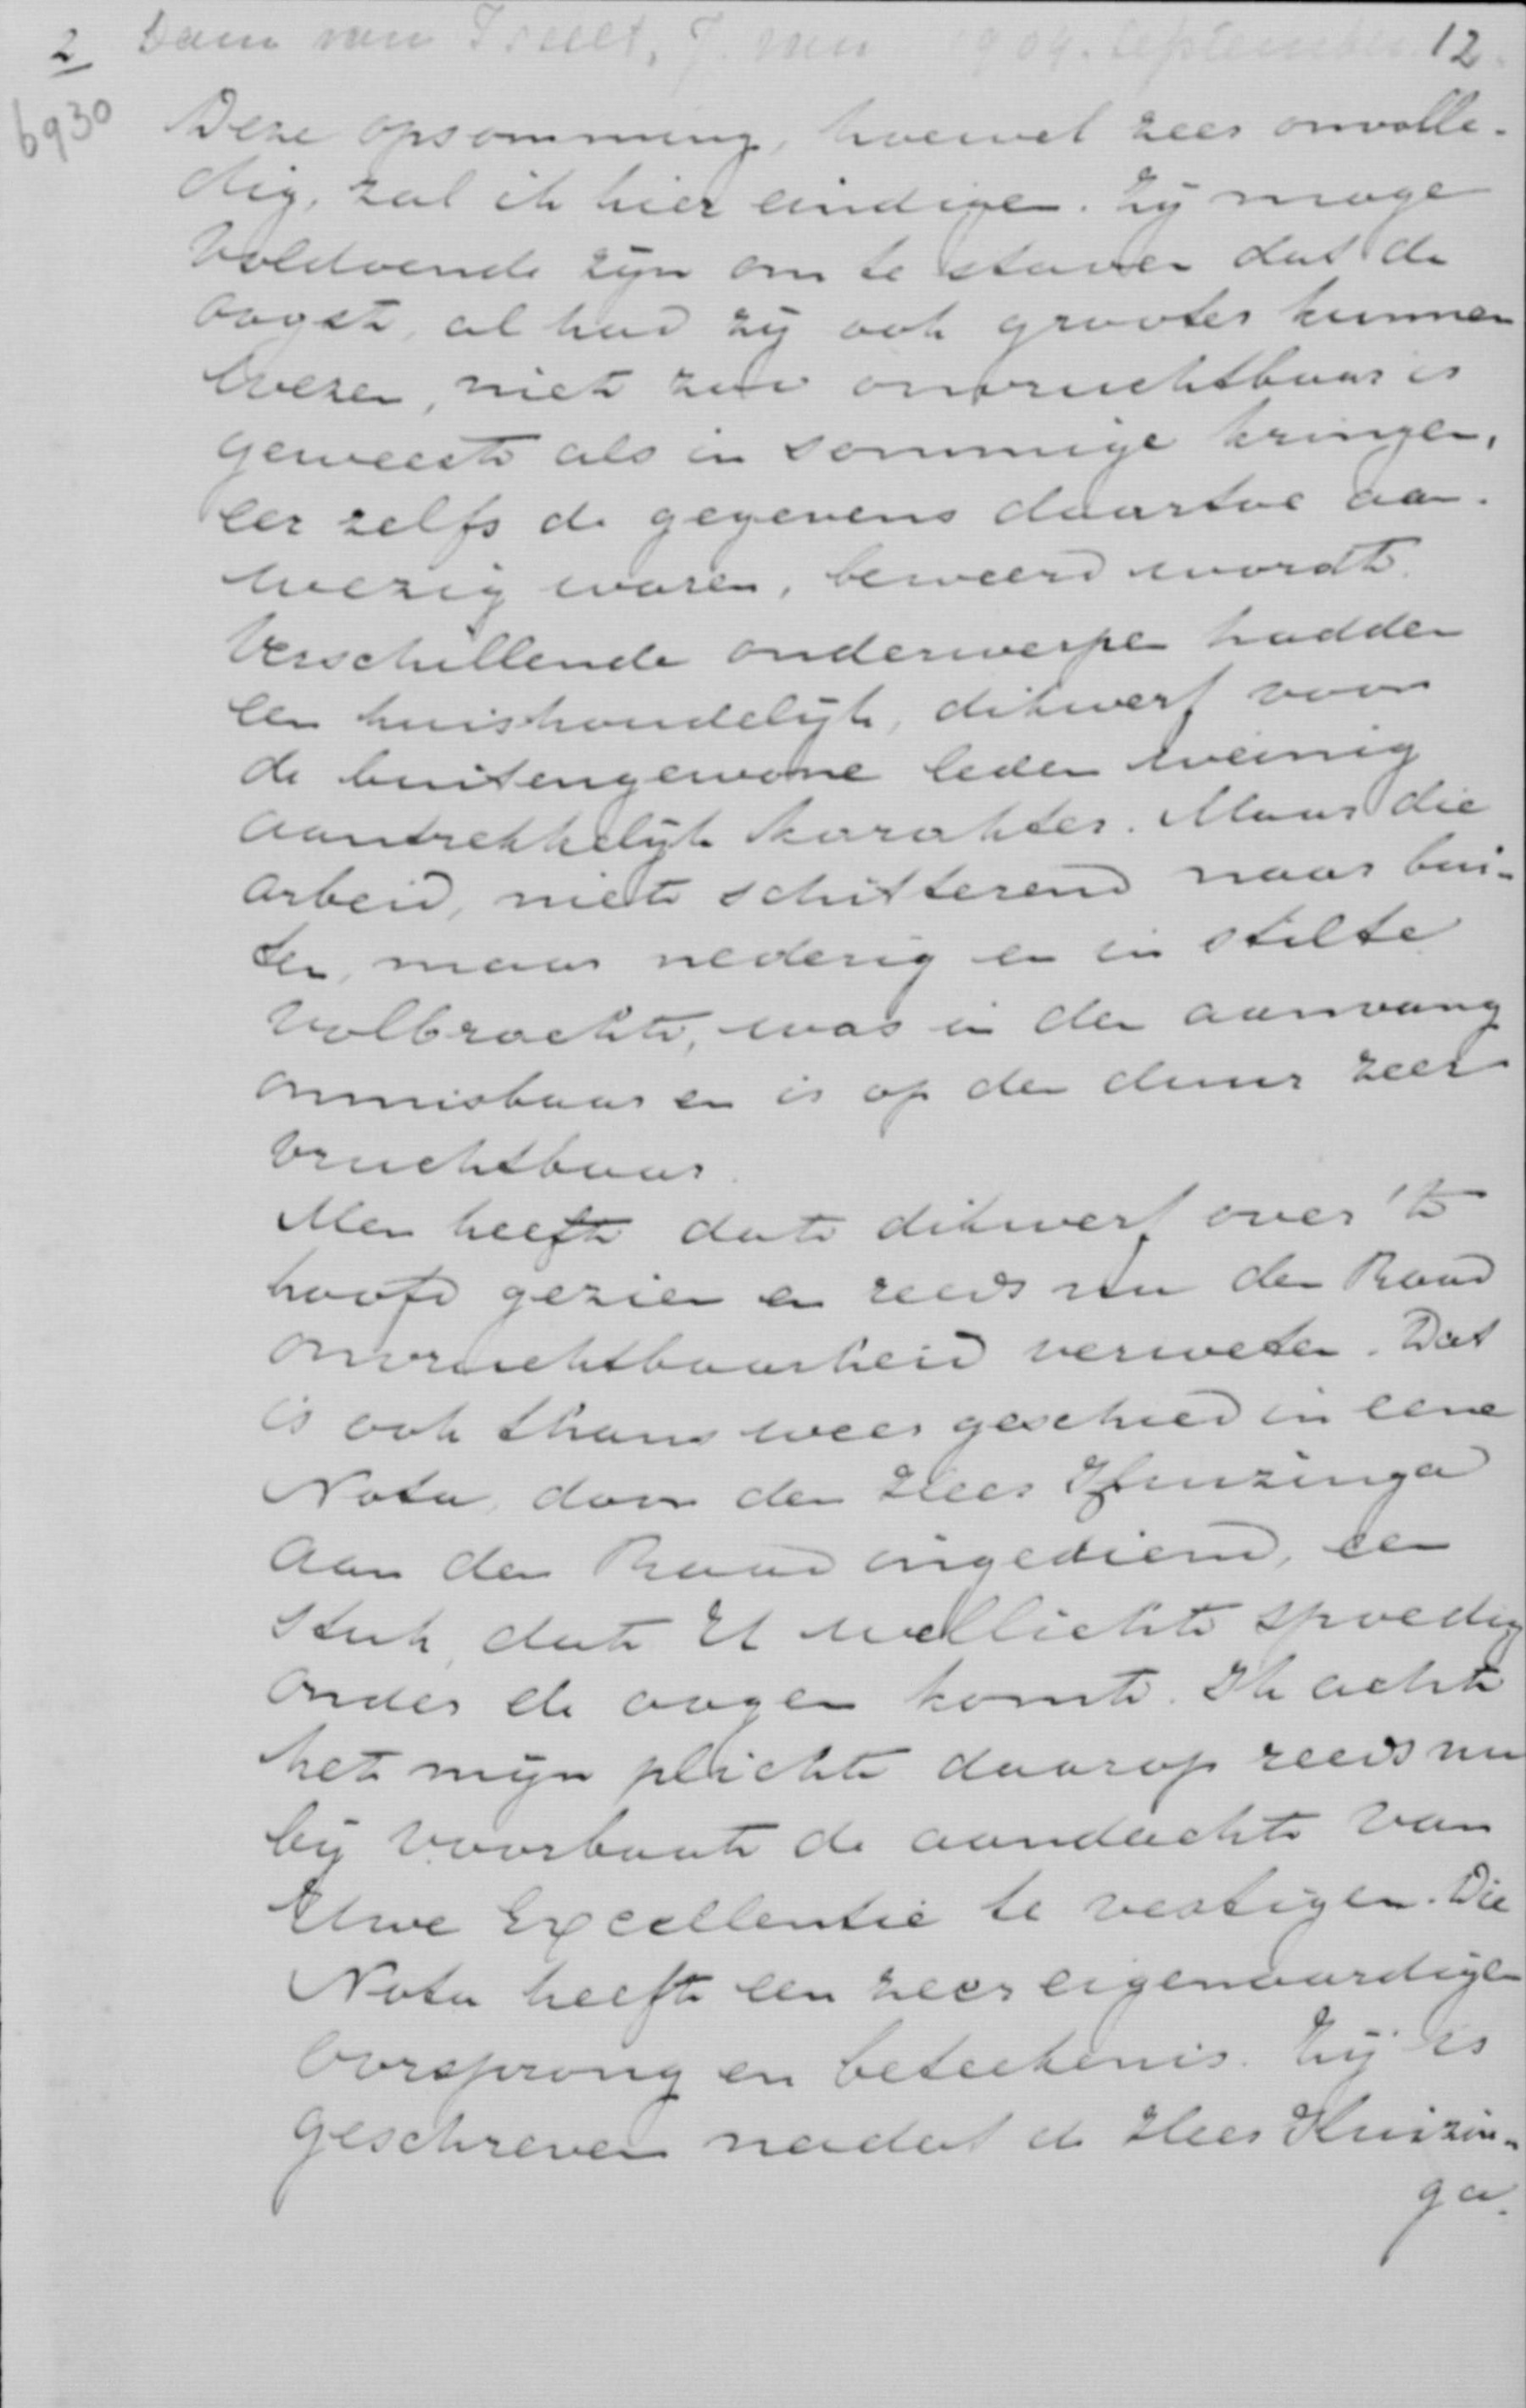 2 Dam van Isselt, J. van 1904. September 12.
6930
Deze opsomming, hoewel zeer onvolle-
dig, zal ik hier eindigen. Zij moge
voldoende zijn om te staven dat de
oogst, al had zij ook grooter kunnen
wezen, niet zoo onvruchtbaar is
geweest als in sommige kringen,
eer zelfs de gegevens daartoe aan-
wezig waren, beweerd wordt.
Verschillende onderwerpen hadden
een huishoudelijk, dikwerf voor
de buitengewone leden weinig
aantrekkelijk karakter. Maar die
arbeid, niet schitterend naar bui-
ten, maar nederig en in stilte
volbracht, was in den aanvang
onmisbaar en is op den duur zeer
vruchtbaar.
Men heeft dat dikwerf over 't
hoofd gezien en reeds nu den Raad
onvruchtbaarheid verweten. Dat
is ook thans weer geschied in eene
Nota, door den Heer Huizinga
aan den Raad ingediend, een
stuk, dat U wellicht spoedig
onder de oogen komt. Ik acht
het mijn plicht daarop reeds nu
bij voorbaat de aandacht van
Uwe Excellentie te vestigen. Die
Nota heeft een zeer eigenaardigen
oorsprong en beteekenis. Zij is
geschreven nadat de Heer Huizin-
ga.